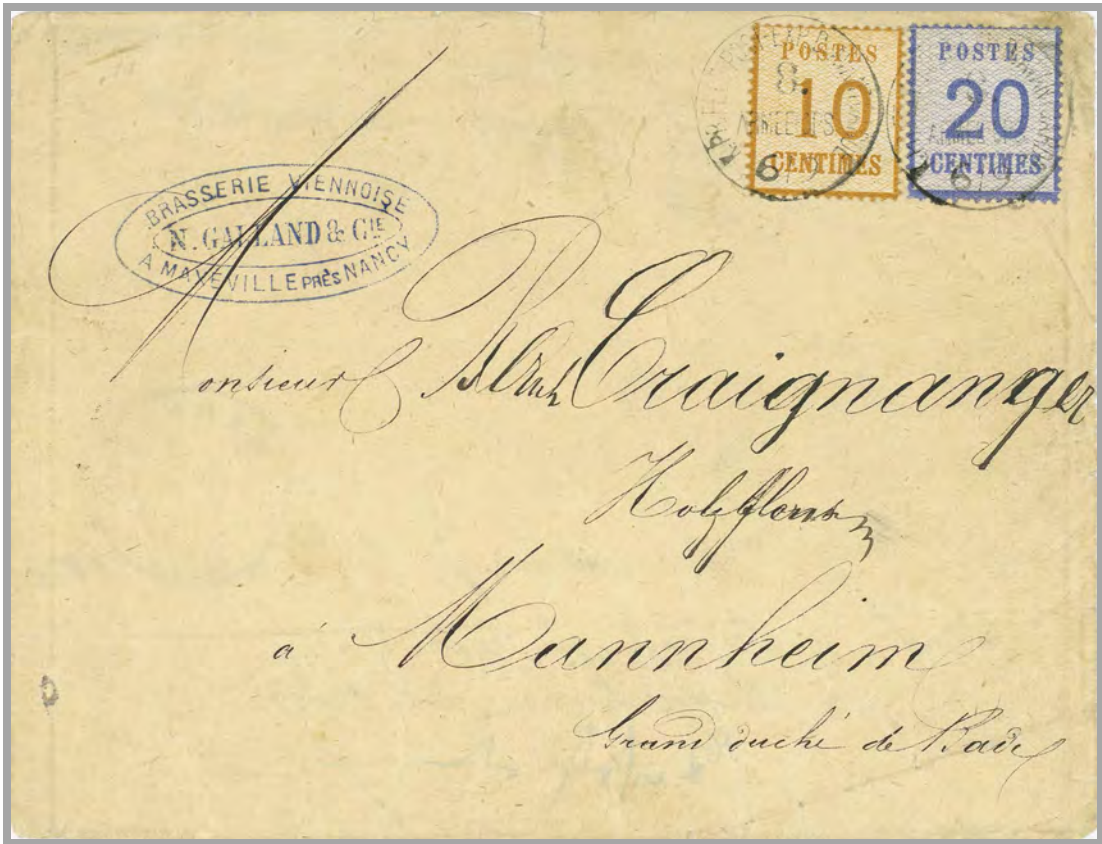 POSTES
10
CENTIMES
POSTES
20
CENTIMES
8.
6/9
6/9
BRASSERIE VIENNOISE
N. GALLAND & CIE
A MAXEVILLE PRÈS NANCY
Monsieur Craignanger
à Mannheim
Grand duché de Bade